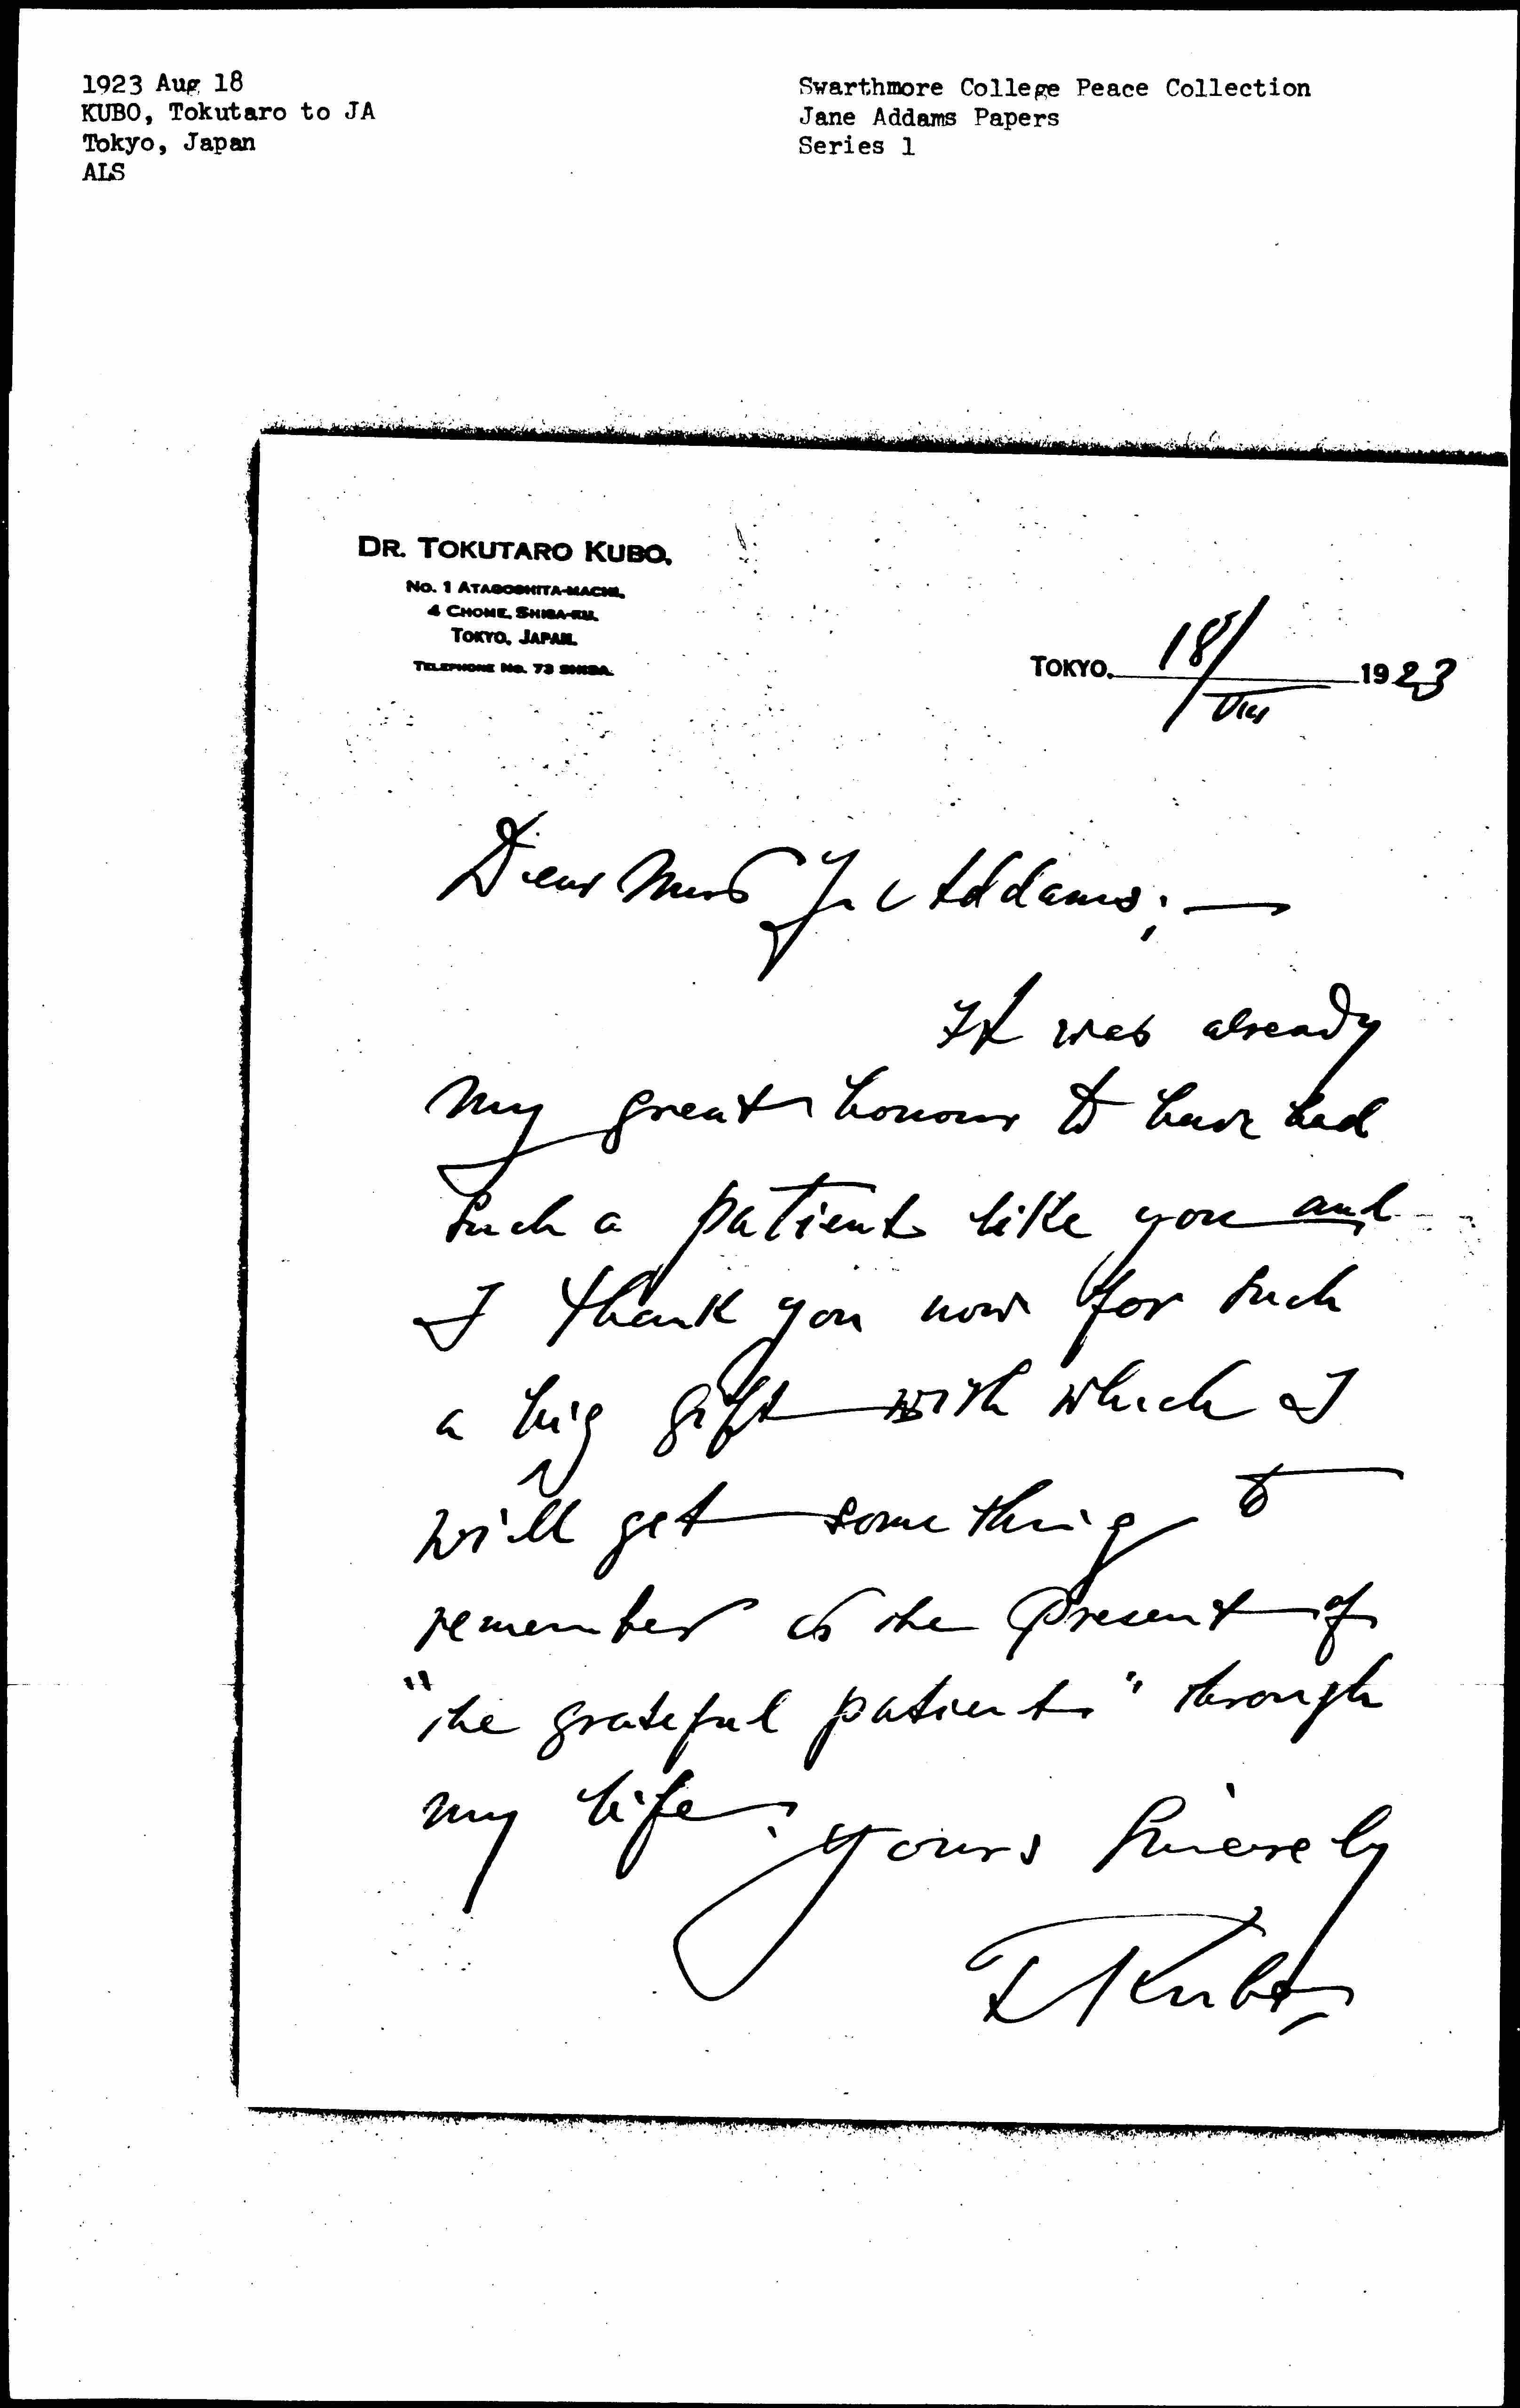 1923 Aug 18
KUBO, Tokutaro to JA
Tokyo, Japan
ALS
Swarthmore College Peace Collection
Jane Addams Papers
Series 1
DR. TOKUTARO KUBO.
No. 1 ATAGOSHITA-MACHI,
4 CHOME, SHIBA-KU,
TOKYO, JAPAN.
TELEPHONE No. 73 SHIBA.
TOKYO. 18/VIII 1923
Dear Miss J. Addams; —
It was already
my great honour to have had
such a patient like you and
I thank you now for such
a big gift with which I
will get something to
remember as the present of
"the grateful patient" through
my life.
Yours sincerely
T Kubo